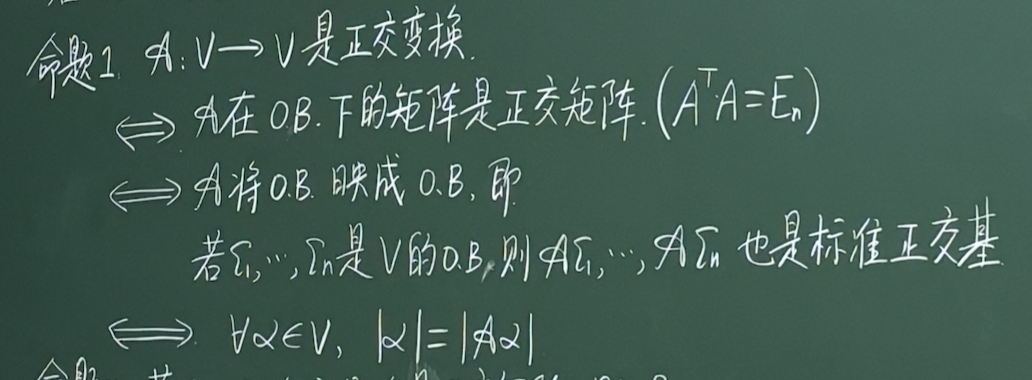 命题1. 𝒜: V→V是正交变换.
⟺ 𝒜在O.B.下的矩阵是正交矩阵. (AᵀA=Eₙ)
⟺ 𝒜将O.B.映成O.B, 即
若ε₁,…,εₙ是V的O.B, 则𝒜ε₁,…, 𝒜εₙ也是标准正交基
⟺ ∀α∈V, |α|=|𝒜α|